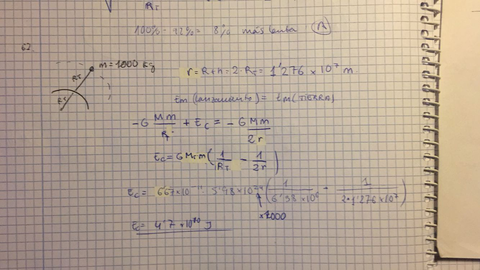 R_T
100% - 92% = 8% más lenta
62
m = 1000 Kg
R_T
R_T
r = R+h = 2·R_T = 1'276 × 10⁷ m.
Em (lanzamiento) = Em (TIERRA)
-G Mm/R + Ec = -G Mm/2r
Ec = G M_T m (1/R_T - 1/2r)
Ec = 6'67×10⁻¹¹ 5'98×10²⁴ (1/6'38×10⁶ - 1/2·1'276×10⁷)
×1000
Ec = 4'7 × 10¹⁰ J